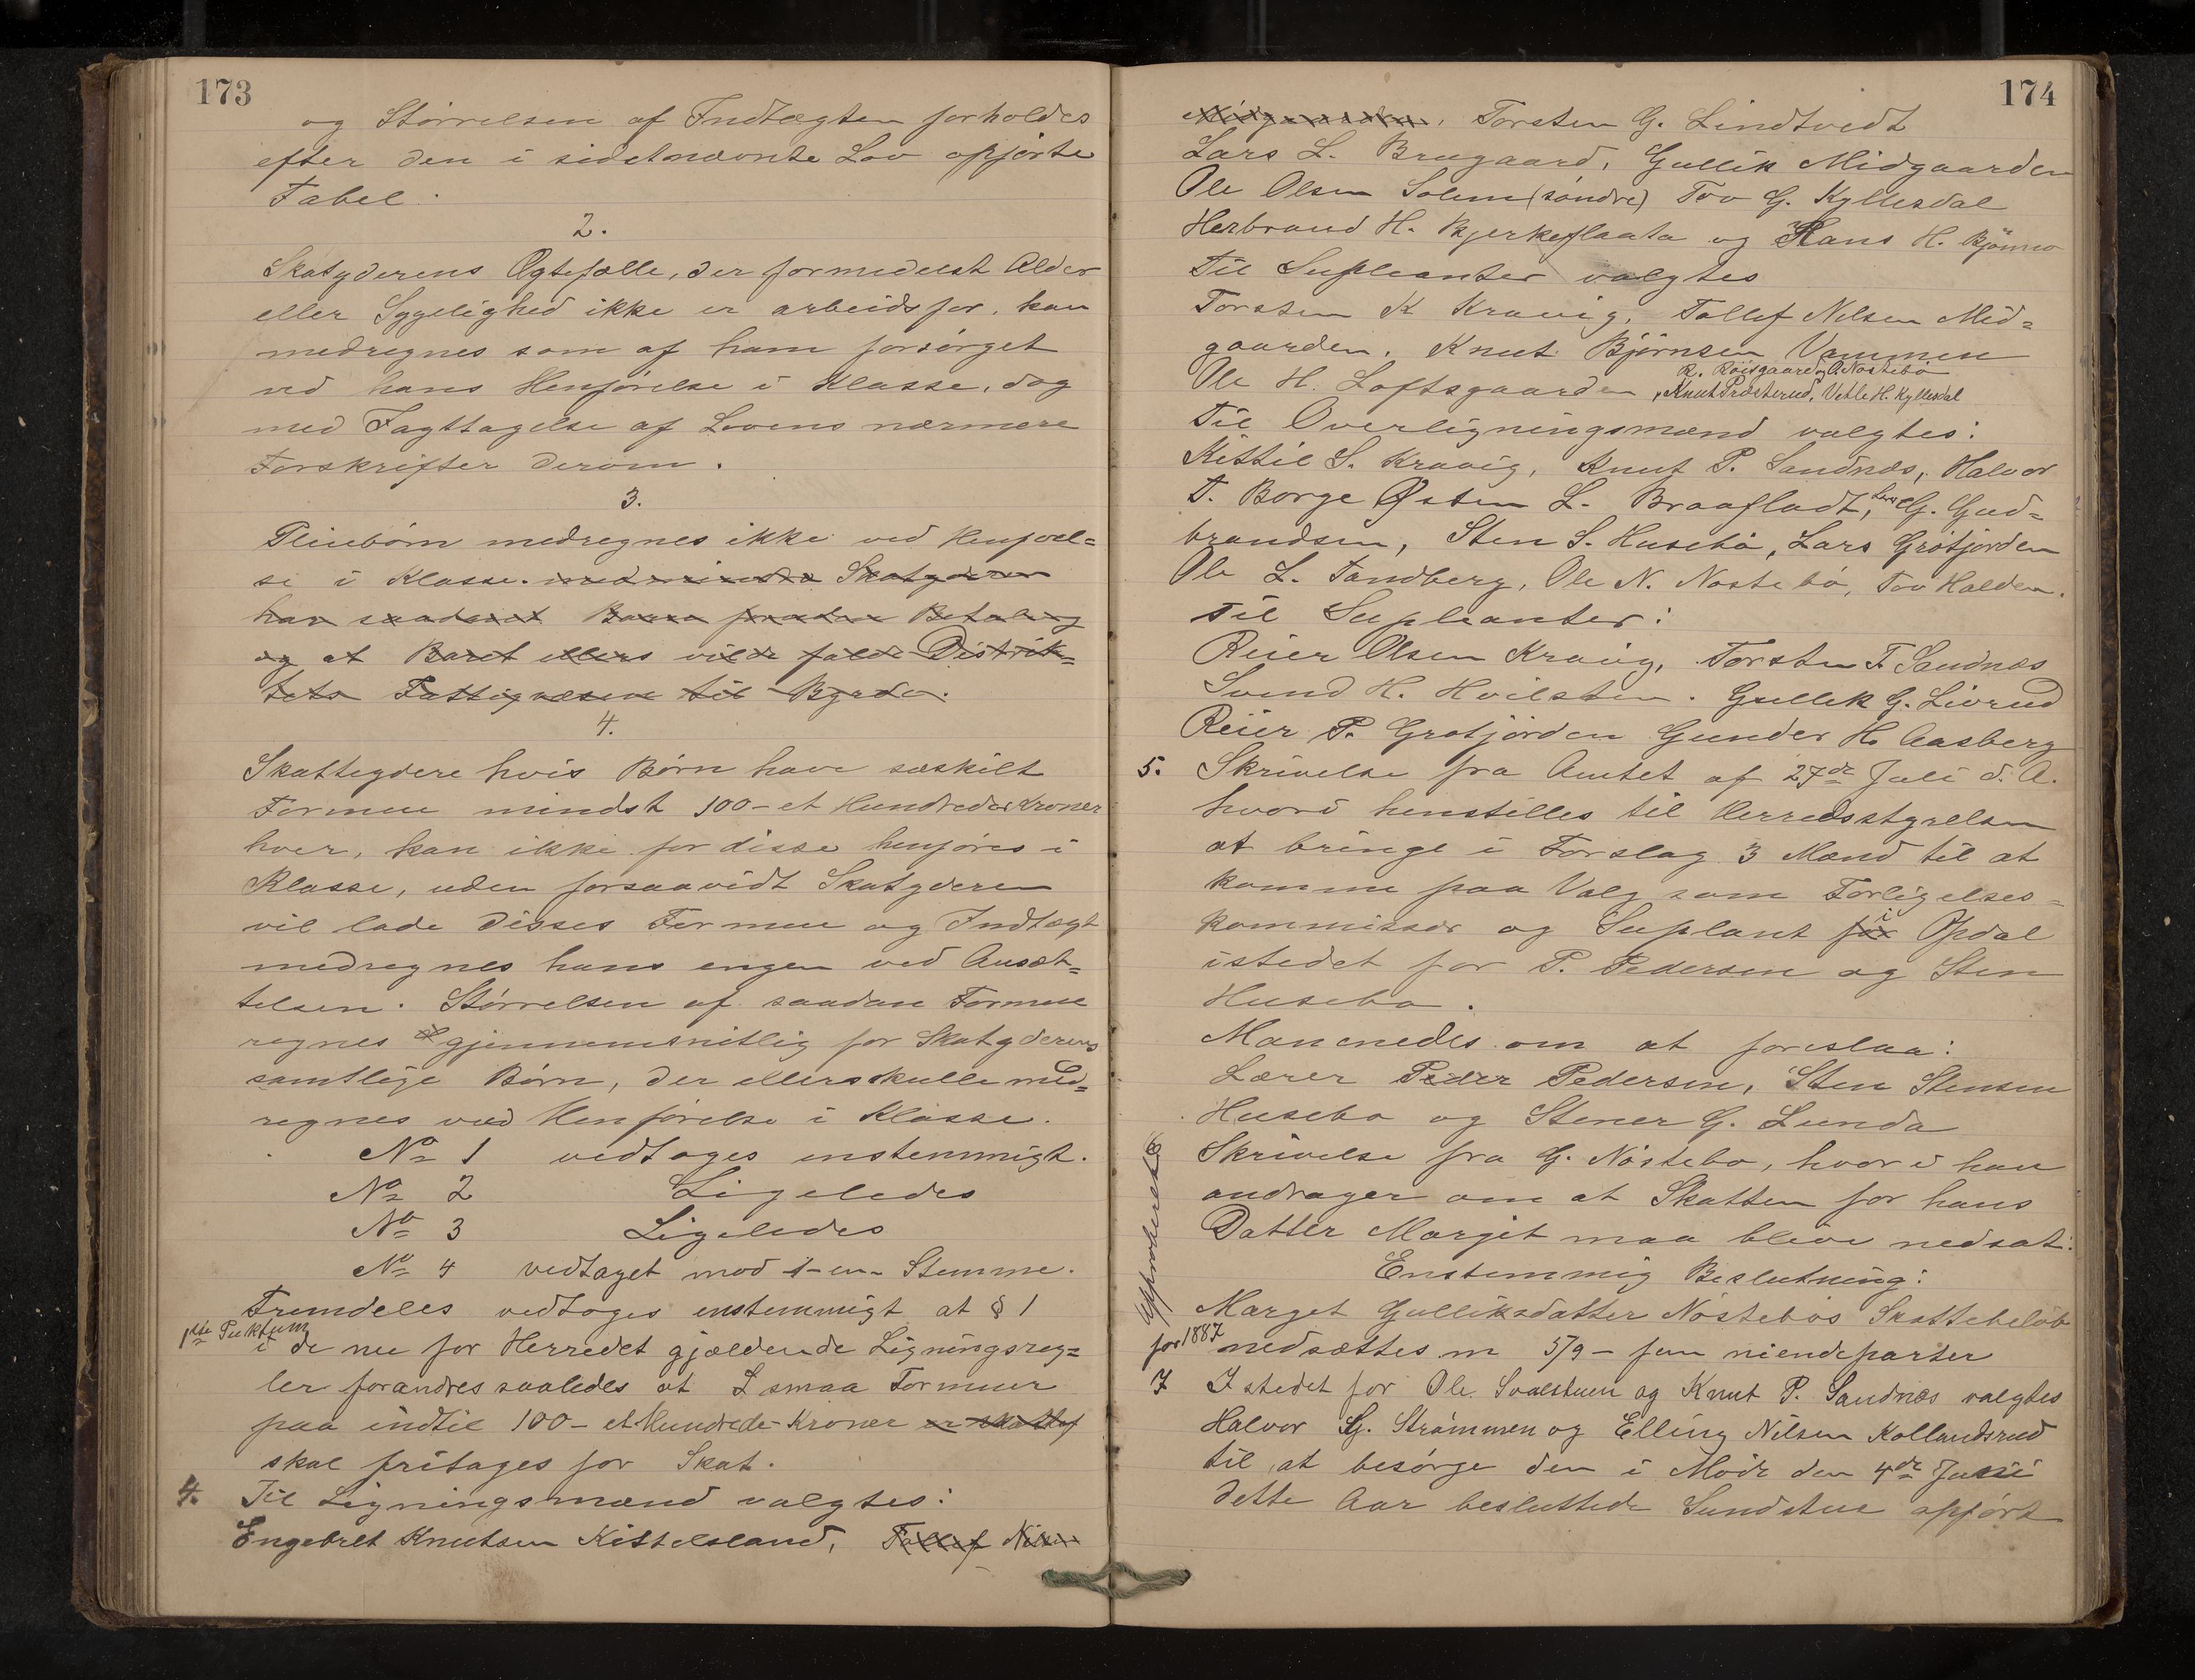 173
og Störrelsen af Indtægten forholdes
efter den i sidstnævnte Lov opförte
Tabel.
2.
Skatyderens Ægtefælle, der formedelst Alder
eller Sygelighed ikke er arbeidsfør, kan
medregnes som af ham forsörget
ved hans Henförelse i Klasse, dog
med Iagttagelse af Lovens nærmere
Forskrifter derom.
3.
Pleiebörn medregnes ikke ved Henföel=
se i Klasse. medmindre Skatyderen
har saadant Barn foruden Betaling
og at Baret ellers vilde falde Distrik=
tets Fattigvæsen til Byrde.
4.
Skattegdere hvis Börn have særskilt
Formue mindst 100 - et Hundrede Kroner
hver, kan ikke for disse henföres i
Klasse, uden forsaavidt Skatyderen
vil lade disses Formue og Indtægt
medregnes hans engen ved Ansæt=
telsen. Störrelsen af saadan Formue
regnes gjennemsnitlig for Skatyderens
samtlige Börn, der ellers skulle med=
regnes ved Henförelse i Klasse.
No 1 vedtoges enstemmigt.
No 2 Ligeledes
No 3 Ligeledes
No 4 vedtaget mod 1 - en - Stemme.
Fremdeles vedtoges enstemmigt at § 1
1ste Puktum
i de nu for Herredet gjældende Ligningsreg=
ler forandres saaledes at smaa Formuer
paa indtil 100 - et Hundrede - Kroner er skattef
skal fritages for Skat.
4. Til Ligningsmænd valgtes:
Engebret Knutsen Kittelsland, Tollef Nilsen
174
Midgaarden, Torsten G. Lindtvedt
Lars L. Brugaard, Gullik Midgaarden
Ole Olsen Solem (söndre) Tov G. Kyllesdal
Herbrand H. Bjerkeflaata og Hans H. Bjönno
Til Supleanter valgtes
Torsten K Kravig, Tollef Nilsen Mid=
gaarden, Knut Björnsen Vammen
R. Röisgaard og O. Nöstebö
Ole H. Loftsgaarden, Knut Præsterud, Vetle H. Kyllesdal
Til Overligningsmænd valgtes:
Kittil S. Kravig, Knut P. Sandnæs, Halvor
T. Borge Østen L. Braafladt, Lars G. Gud=
brandsen, Sten S. Husebö, Lars Grötjorden
Ole L. Tandberg, Ole N. Nöstebö, Tov Halden.
Til Supleanter:
Reier Olsen Kravig, Torsten T. Sandnæs
Svend H. Hvilsten. Gullik G. Livrud
Reier P. Grotjörden Gunder H. Aasberg
5. Skrivelse fra Amtet af 27de Juli d. A.
hvori henstilles til Herredsstyrelsen
at bringe i Forslag 3 Mænd til at
komme paa Valg som Forligelses=
kommissær og Suplant for i Opdal
istedet for P. Pedersen og Sten
Husebo.
Man enedes om at foreslaa:
Lærer Peder Pedersen, Sten Stensen
Husebo og Stener G. Lunda
6 Approberet
Skrivelse fra G. Nöstebo, hvori han
andrager om at Skatten for hans
Datter Margit maa blive nedsat:
Enstemmig Beslutning:
Marget Gulliksdatter Nöstebös Skattebelöb
for 1887 nedsættes m 5/9 - fem niendeparter
7 I stedet for Ole Svalstuen og Knut P. Sandnæs valgtes
Halvor G. Strömmen og Elling Nilsen Kollandsrud
til at besörge den i Möde den 4de Juni
dette Aar besluttede Sundstue opfört